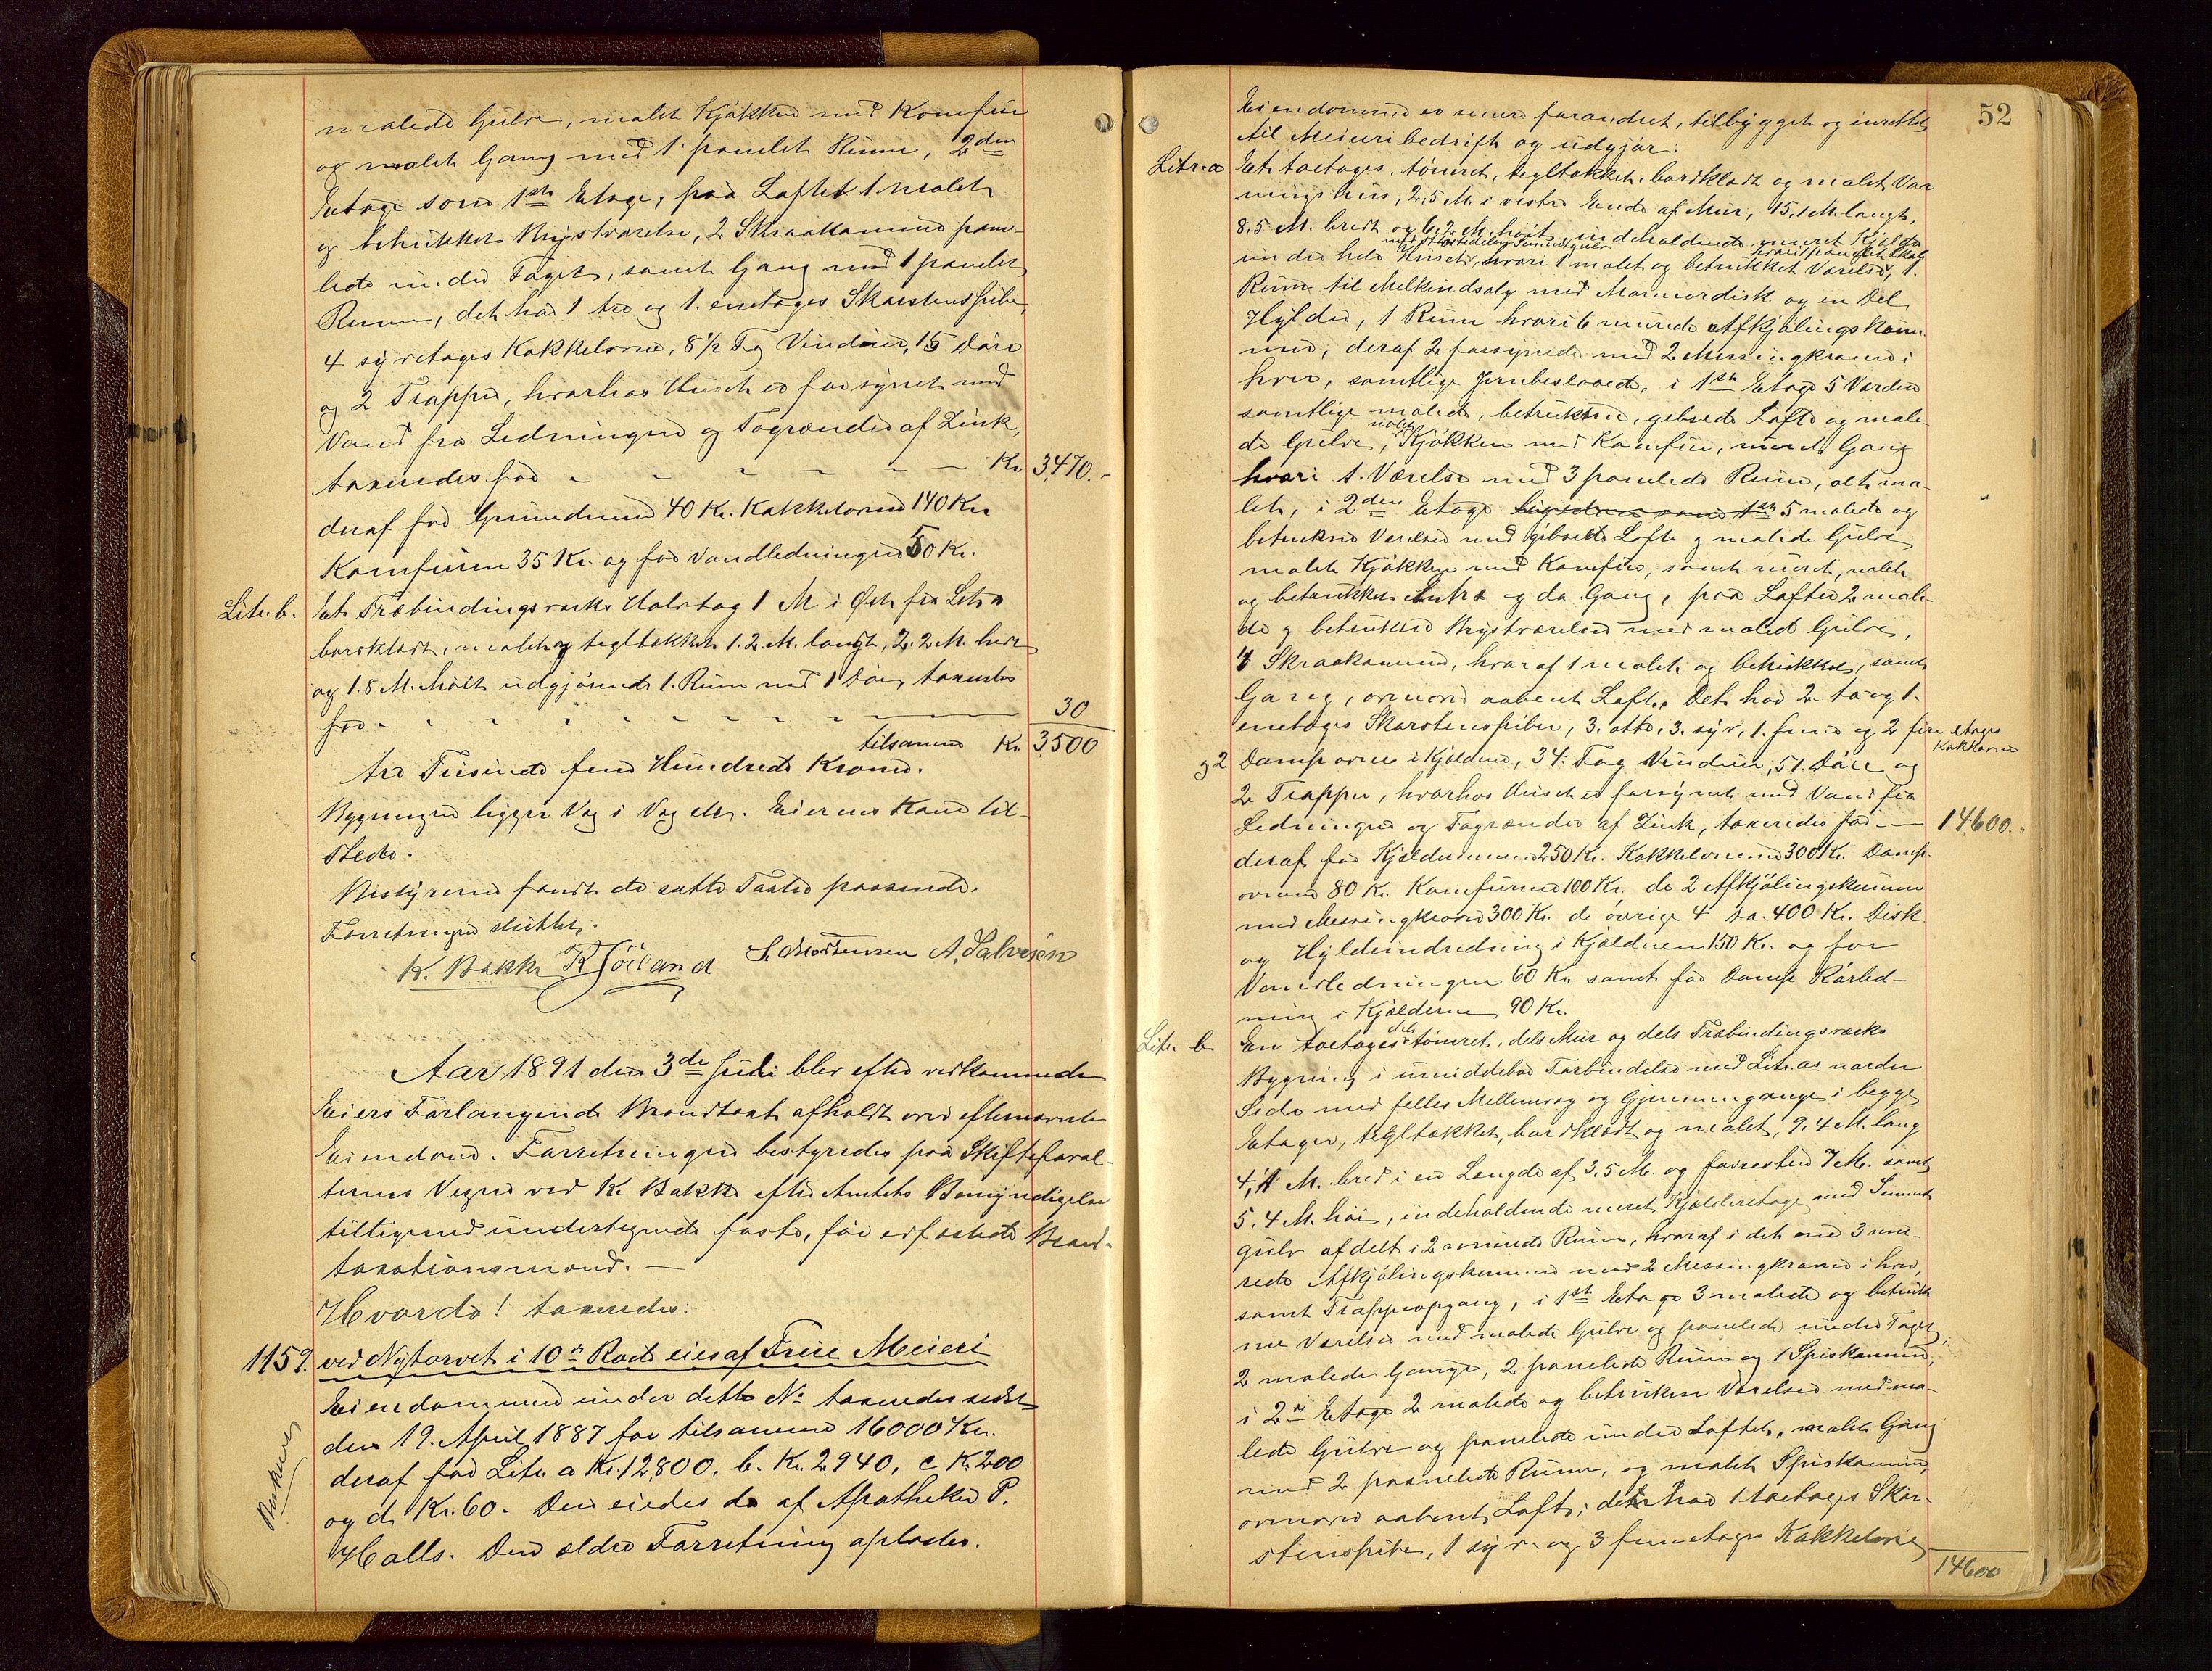 malede Gulve, malet Kjøkken med Komfur
og malet Gang med 1 panelet Rum, 2den
Etage som 1ste Etage, paa Loftet 1 malet
og betrukket Kvistværelse, 2 Skraakammere pane-
lede under Taget, samt Gang med 1 panelet
Rum, det har 1 tre og 1. enetages Skorstenspibe,
4 syvetages Kakkelovne, 8 1/2 Fag Vinduer, 15 Døre
og 2 Trapper, hvorhos Huset er forsynet med
Vand fra Ledningen og Tagrender af Zink,
taxeredes for - - - - - - Kr 3,470.-
deraf for Grunmuren 40 Kr. Kakkelovnene 140 Kr
Komfuren 35 Kr. og for Vandledningen 50 Kr.
Litr. b. Et Træbindingsværks Halvtag 1 M i Øst fra Litr a
bordklædt, malet og tegltækket 1.2 M. langt, 2,2 M. bredt
og 1.8 M. høit udgjørende 1. Rum med 1 Dør, taxeredes
for - - - - - - - - 30
tilsammen Kr. 3,500
tre Tusinde fem Hundrede Kroner.
Bygningen ligger Væg i Væg etc. Eierens Kone til-
stede.
Bestyreren fandt de satte Taxter passende.
Forretningen sluttet.
K. Bakke R Göiland S. Mortensen A. Salvesen
Aar 1891 den 3de Juli blev efter vedkommende
Eiers Forlangende Brandtaxt afholdt over efternævnte
Eiendom. Forretningen bestyredes paa Skifteforval-
terens Vegne ved K. Bakke efter Amtets Bemyndigelse
tilligemed undertegnede faste, før edfæstede Brand-
taxationsmænd. —
Hvorda! taxeredes:
1159. ved Nytorvet i 10de Rode eies af Freie Meieri
Eiendommen under dette No taxeredes sidst
den 19. April 1887 for tilsammen 16000 Kr.
deraf for Litr. a Kr. 12,800, b. Kr. 2,940, c Kr 200
og d Kr. 60. Den eiedes da af Apotheker P.
Halls. Den ældre Forretning oplæstes.
52
Eiendommen er senere forandret, tilbygget og indrettet
til Meieribedrift og udgjør:
Litr. a Et toetages. tømret, tegltækket. bordklædt og malet Vaa
ningshus, 2,5 M. i vestre Ende af Mur, 15,1 M. langt,
8,5 M. bredt og 6.2 M. høit, indeholdende muret Kjælder
med største delen Sementgulv
under hele Huset, hvori 1 malet og betrukket Værelse, 1.
Rum til Melkeudsalg med Marmordisk og en Del
Hylder, 1 Rum hvori 6 murede Afkjølingskum-
mer, deraf 2 forsynede med 2 Messingkraner i
hver, samtlige Jernbeslaaede, i 1ste Etage 5 Værelser
samtlige malede, betrukne, gibsede Lofte og male-
malet
de Gulve, Kjøkken med Komfur, muret Gang
hvori 1. Værelse med 3 panelede Rum, alt ma-
let, i 2den Etage ligedan som 1ste 5 malede og
betrukne Værelser med gibsede Lofte og malede Gulve
malet Kjøkken med Komfur, samt muret, malet
og betrukket Entre og do Gang, paa Loftet 2 male-
de og betrukne Kvistværelser med malede Gulve,
4 Skraakammere, hvoraf 1 malet og betrukket, samt
Gang, ovenover aabent Loft. Det har 2 to og 1.
enetages Skorstenspiber, 3. otte, 3. syv, 1. fem og 2 fire etages
Kakkelovne
og 2 Dampovne i Kjælderen, 34. Fag Vinduer, 51. Døre og
2 Trapper, hvorhos Huset er forsynet med Vand fra
Ledningen og Tagrender af Zink, taxeredes for — 14,600.
deraf for Kjældermuren 250 Kr. Kakkelovnene 300 Kr. Damp-
ovnene 80 Kr. Komfurene 100 Kr. de 2 Afkjølingskummer
med Messingkraner 300 Kr. de øvrige 4 do. 400 Kr. Disk
og Hyldeindredning i Kjælderen 150 Kr. og for
Vandledningen 60 Kr. samt for Damp Rørled-
ning i Kjælderen 90 Kr.
dels
Litr. b. En toetages tømret, dels Mur og dels Træbindingsværks
Bygning i umiddelbar Forbindelse med Litr. as nordre
Side med fælles Mellemvæg og Gjennemgange i begge
Etager, tegltækket, bordklædt og malet, 9,4 M. lang
4,4 M. bred i en Længde af 3,5 M. og forresten 7 M. samt
5,4 M. høi, indeholdende muret Kjælderetage med Sement
gulv afdelt i 2 murede Rum, hvoraf i det ene 3 mu-
rede Afkjølingskummer med 2 Messingkraner i hver,
samt Trappeopgang, i 1ste Etage 3 malede og betruk
ne Værelser med malede Gulve og panelede under Taget,
2 malede Gange, 2 panelede Rum og 1 Spiskammer,
i 2n Etage 2 malede og betrukne Værelser med ma-
lede Gulve og panelede under Loftet, malet Gang
med 2 panelede Rum, og malet Spiskammer,
ovenover aabent Loft; det har 1 toetages Skor-
stenspibe, 1 syv- og 3 femetages Kakkelovne
14600